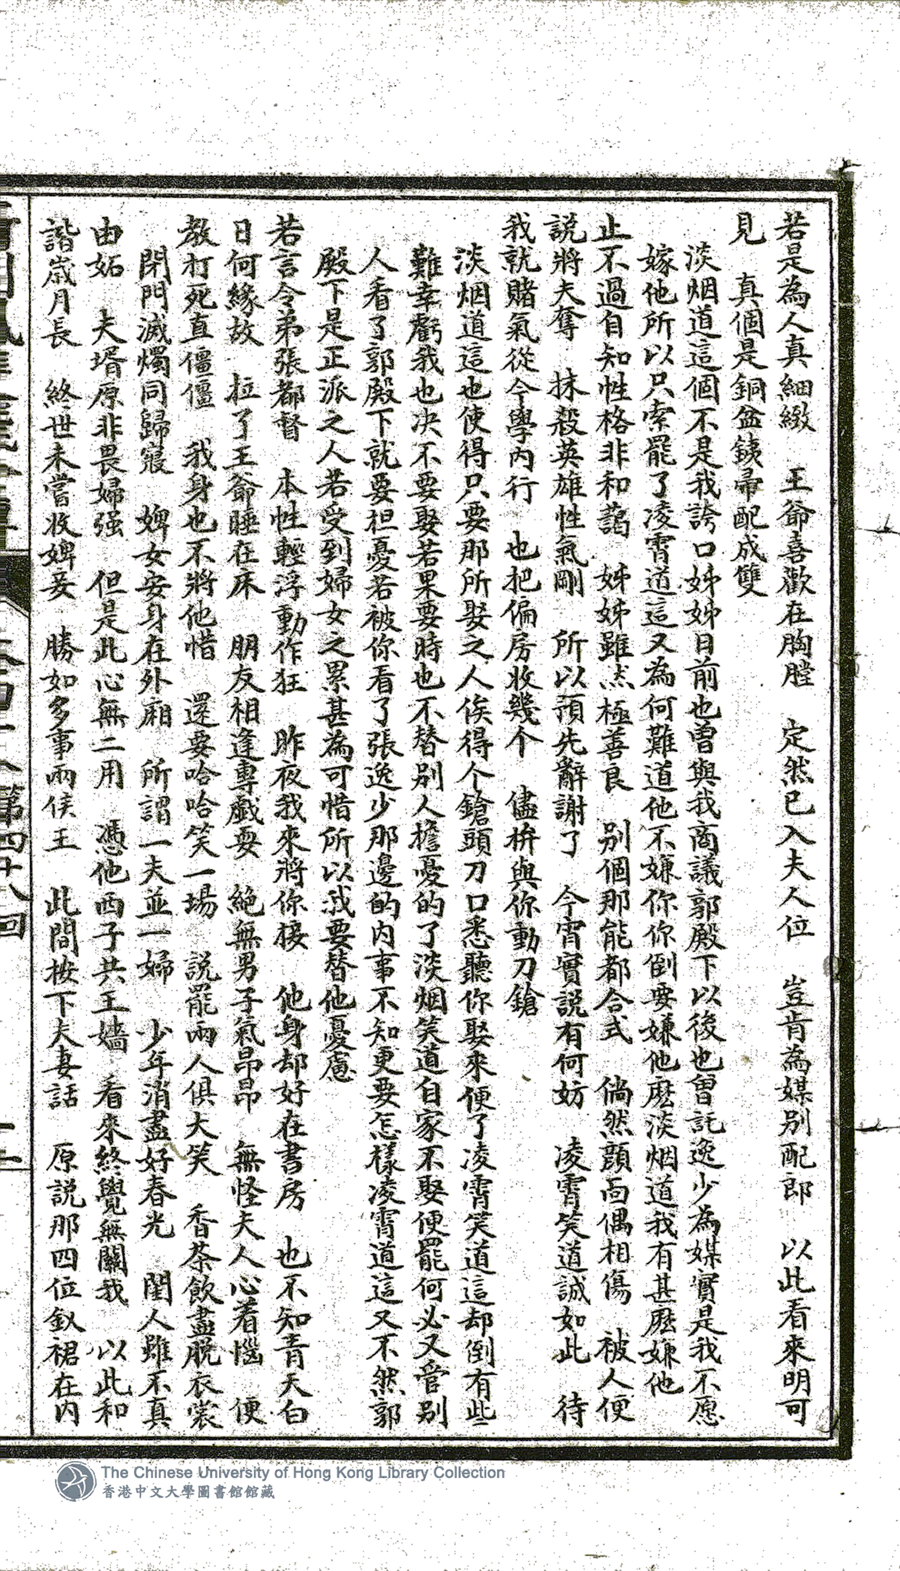 若是為人真細緻　王爺喜歡在胸膛　定然已入夫人位　豈肯為媒别配郎　以此看來明可
見　真個是銅盆鐵帚配成雙
淡烟道這個不是我誇口姊姊日前也曾與我商議郭殿下以後也曾託逸少為媒實是我不愿
嫁他所以只索罷了凌霄道這又為何難道他不嫌你你倒要嫌他麽淡烟道我有甚麽嫌他
止不過自知性格非和藹　姊姊雖然極善良　别個那能都合式　倘然顔面偶相傷　被人便
説將夫奪　抹殺英雄性氣剛　所以預先辭謝了　今宵實説有何妨　凌霄笑道誠如此　待
我就賭氣從今學內行　也把偏房收幾个　儘拚與你動刀鎗
淡烟道這也使得只要那所娶之人俟得个鎗頭刀口悉聽你娶來便了凌霄笑道這却倒有些
難幸虧我也决不要娶若果要時也不替别人擔憂的了淡烟笑道自家不娶便罷何必又管别
人看了郭殿下就要担憂若被你看了張逸少那邊的内事不知更要怎樣凌霄道這又不然郭
殿下是正派之人若受到婦女之累甚為可惜所以我要替他憂慮
若言令弟張都督　本性輕浮動作狂　昨夜我來將你接　他身却好在書房　也不知青天白
日何緣故　拉了王爺睡在床　朋友相逢專戲耍　絶無男子氣昂昂　無怪夫人心着惱　便
教打死直僵僵　我身也不將他惜　還要哈哈笑一場　説罷兩人俱大笑　香茶飲盡脱衣裳
閉門滅燭同歸寢　婢女安身在外廂　所謂一夫並一婦　少年消盡好春光　閨人雖不真
由妬　夫壻原非畏婦强　但是此心無二用　憑他西子共王嬙　看來終覺無關我　以此和
諧歲月長　終世未嘗收婢妾　勝如多事兩侯王　此間按下夫妻話　原説那四位釵裙在内
第四十八回
The Chinese University of Hong Kong Library Collection
香港中文大學圖書館館藏